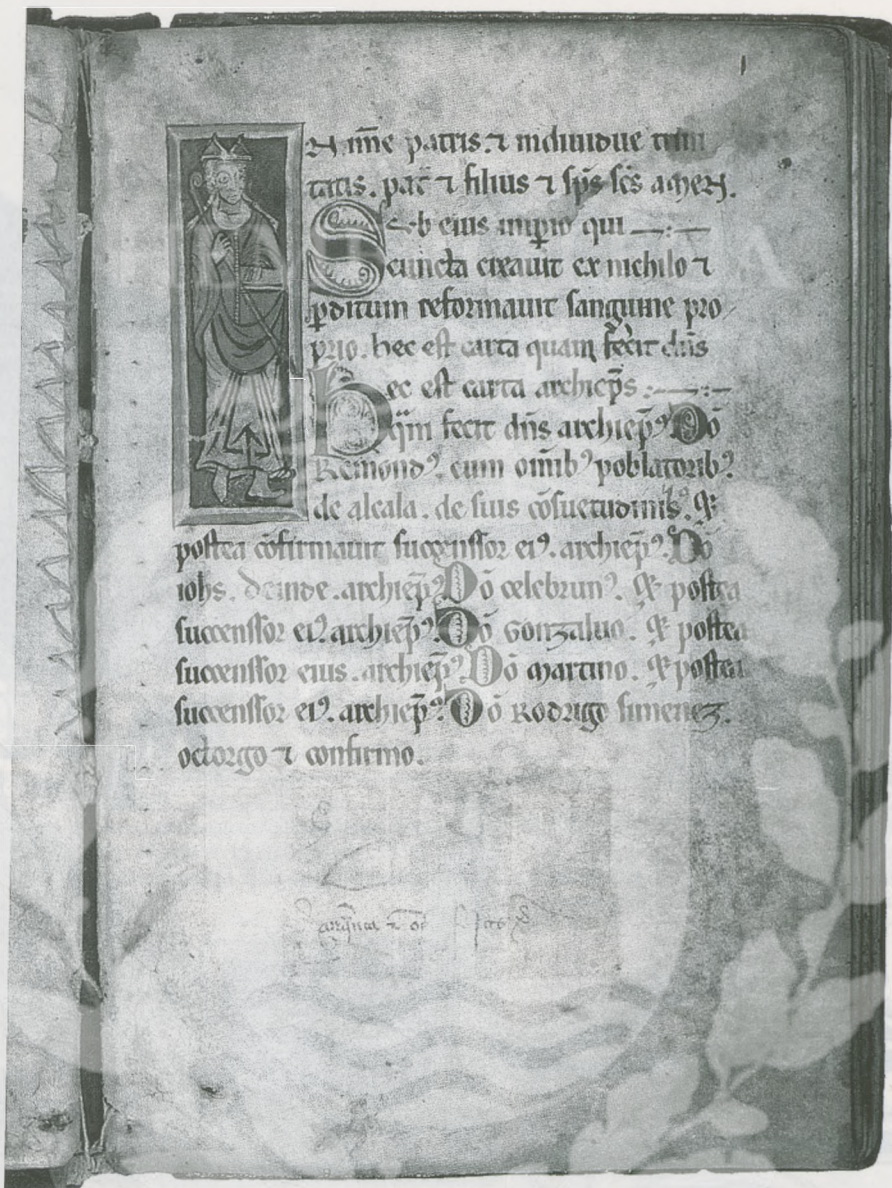 N nõie patris. ⁊ indiuidue trini
tatis. pat̃ ⁊ filius ⁊ sp̃s sc̃s amen.
Sub eius imp̃io qui
cuncta creauit ex nichilo ⁊
ꝑditum reformauit sanguine pro
prio. hec est carta quam fecit dñs
hec est carta archiep̃s
q̃m fecit dñs archiep̃ꝰ Dõ
Remondꝰ. cum om̃ibꝰ poblatoribꝰ
de alcala. de suis cõsuetudinis. Et
postea cõfirmauit succenssor eiꝰ. archiep̃ꝰ. Dõ
iohs. deinde. archiep̃ꝰ Dõ celebrunꝰ. Et postea
succenssor eiꝰ archiep̃ꝰ. Dõ Gonzaluo. Et postea
succenssor eius. archiep̃ꝰ Dõ Martino. Et postea
succenssor eiꝰ. archiep̃ꝰ. Dõ Rodrigo simenez.
octorgo ⁊ confirmo.